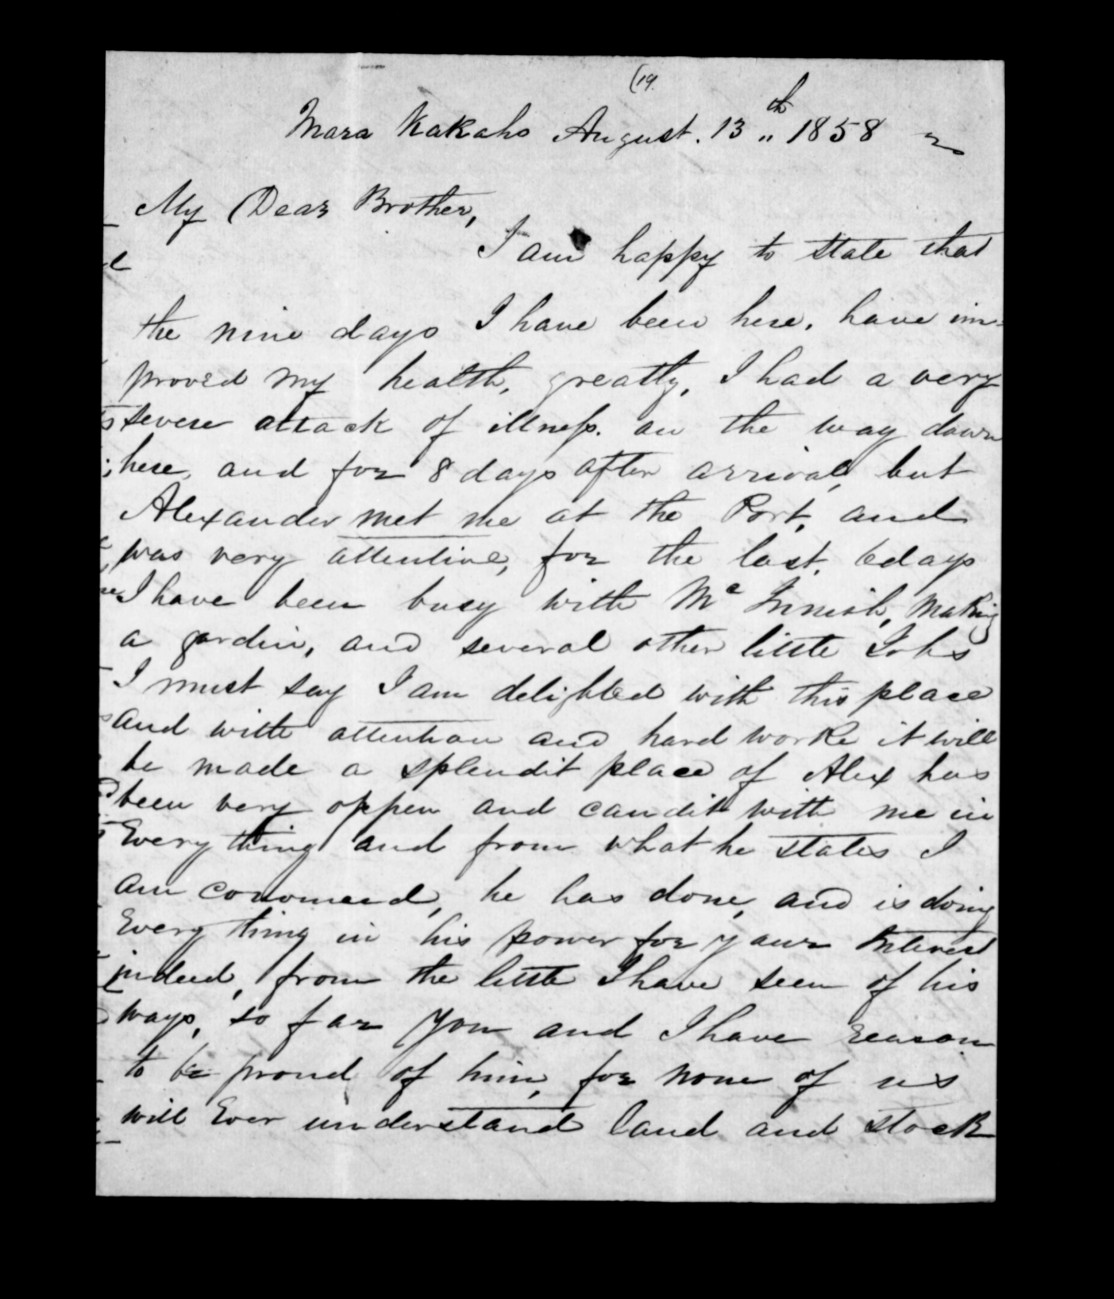 (19.
Mara Kakaho August. 13th 1858
My Dear Brother,
I am happy to state that
the nine days I have been here, have im-
proved my health, greatly, I had a very
severe attack of illness. on the way down
here, and for 8 days after arrival, but
Alexander met me at the Port, and
was very attentive, for the last, 6 days
I have been busy with Mc Innish, making
a garden, and several other little Jobs
I must say I am delighted with this place
and with attention and hard worke it will
be made a splendit place of Alex has
been very oppen and candit with me in
Every thing and from what he states I
am convinced, he has done, and is doing
Every thing in his power for your Interest
indeed, from the little I have seen of his
ways, so far You and I have reason
to be proud of him, for none of us
will Ever understand land and stock